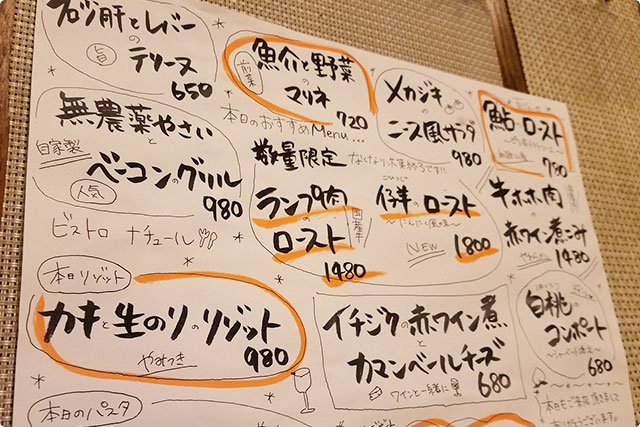 肝とレバー
の
テリーヌ
旨
650
魚介と野菜
の
マリネ
前菜
720
メカジキ
の
ニース風サラダ
980
鮎のロースト
780
無農薬やさい
と
自家製
ベーコンのグリル
人気
980
本日のおすすめMenu...
数量限定
なくなり次第終了です!!
ランプ肉
の
ロースト
国産牛
1480
仔羊のロースト
～にんにく風味～
NEW
1800
牛ホホ肉
の
赤ワイン煮こみ
1480
ビストロ ナチュール
本日リゾット
カキと生のりのリゾット
やみつき
980
イチジクの赤ワイン煮
と
カマンベールチーズ
ワインと一緒に
680
白桃
の
コンポート
680
本日のパスタ
本日もご来店頂きまして
ありがとうございます。